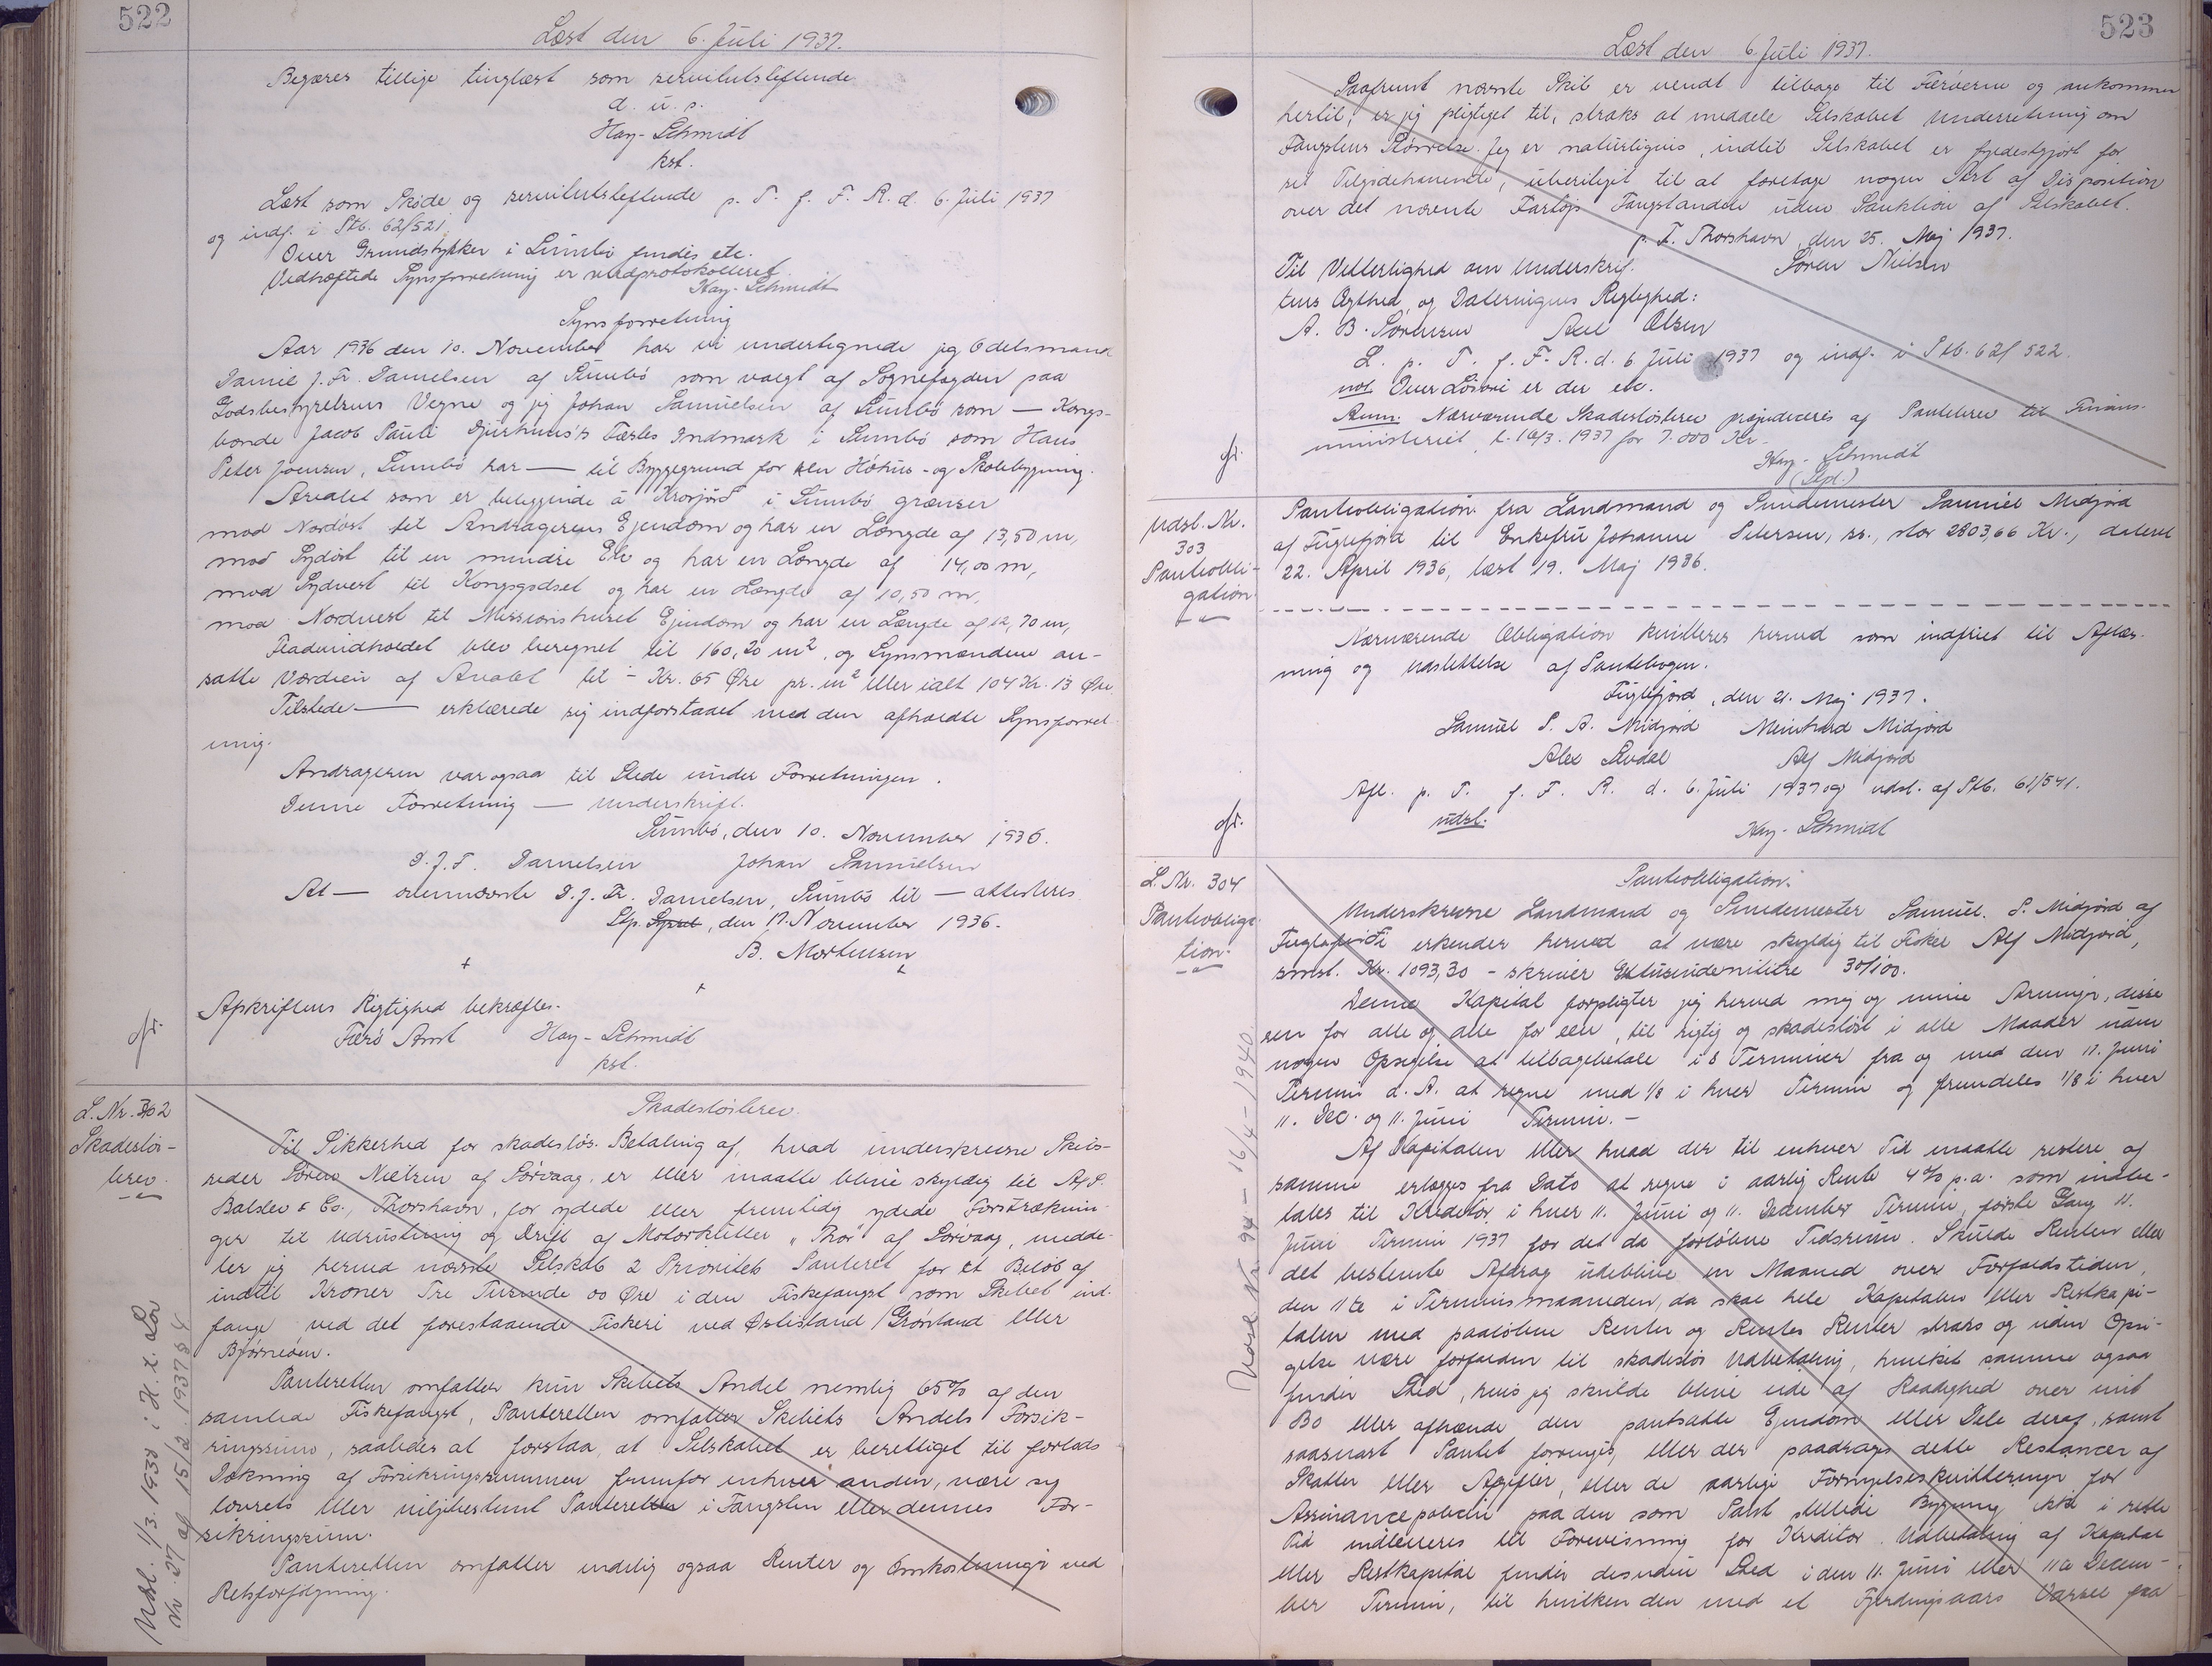 522
Læst den 6. Juli 1937.
Begæres tillige tinglæst som servitutstiftende
d. u. s.
Hay-Schmidt
kst.
Læst som Skøde og servitutstiftende p. T. f. F. R. d. 6. Juli 1937
og indf. i Ptb. 62/521
Over Grundstykker i Sumbø findes etc.
Vedhæftede Synsforretning er medprotokolleret.
Hay-Schmidt
Synsforretning
Aar 1936 den 10. November har vi undertegnede jeg Odelsmand
Daniel J. Fr. Danielsen af Sumbø som valgt af Sognefogden paa
Godsbestyrelsens Vegne og jeg Johan Samuelsen af Sumbø som — Kongs-
bonde Jacob Pauli Djurhuus's Fæstes Indmark i Sumbø som Hans
Peter Joensen, Sumbø har — til Byggegrund for en Høhus- og Skolebygning.
Arealet som er beliggende á Krosjørð i Sumbø grænser
mod Nordøst til Andragerens Ejendom og har en Længde af 13,50 m,
mod Sydøst til en mindre Elv og har en Længde af 14,00 m,
mod Sydvest til Kongsgodset og har en Længde af 10,50 m,
mod Nordvest til Missionshuset Ejendom og har en Længde af 12,70 m,
Fladeindholdet blev beregnet til 160,20 m², og Synsmændene an-
satte Værdien af Arealet til - Kr. 65 Øre pr. m² eller ialt 104 Kr. 13 Øre.
Tilstede — erklærede sig indforstaaet med den afholdte Synsforret-
ning.
Andrageren var ogsaa til Stede under Forretningen.
Denne Forretning — underskrift.
Sumbø, den 10. November 1936.
D. J. F. Danielsen Johan Samuelsen
At — ovennævnte D. J. Fr. Danielsen, Sumbø til — attesteres
Slp. , den 17. November 1936.
B. Mortensen
Afskriftens Rigtighed bekræftes.
Færø Amt Hay-Schmidt
kst.
L. Nr. 302
Skadesløs-
brev.
Skadesløsbrev.
Til Sikkerhed for skadesløs Betaling af, hvad underskrevne Skibs-
reder Søren Nielsen af Sørvaag, er eller maatte blive skyldig til A/S.
Balslev & Co., Thorshavn, for ydede eller fremtidig ydede Forstræknin-
ger til Udrustning og Drift af Motorkutter "Thor" af Sørvaag, medde-
ler jeg herved nævnte Selskab 2 Prioritets Panteret for et Beløb af
indtil Kroner Tre Tusinde 00 Øre i den Fiskefangst som Skibet ind-
fange ved det forestaaende Fiskeri ved Østisland/Grønland eller
Bjørneøen.
Panteretten omfatter kun Skibets Andel nemlig 65% af den
samlede Fiskefangst, Panteretten omfatter Skibets Andels Forsik-
ringssum, saaledes at forstaa, at Selskabet er berettiget til forlods
Dækning af Forsikringssummen fremfor enhver anden, være sig
lovrets eller viljebestemt Panteret i Fangsten eller dennes For-
sikringssum.
Panteretten omfatter endelig ogsaa Renter og Omkostninger ved
Retsforfølgning.
Udsl. 1/3. 1938 i H. t. Lov
Nr. 27 af 15/2. 1937 § 4
523
Læst den 6. Juli 1937.
Saafremt nævnte Skib er vendt tilbage til Færøerne og ankommer
hertil, er jeg pligtiget til, straks at meddele Selskabet Underretning om
Fangstens Størrelse. Jeg er naturligvis, indtil Selskabet er fyldestgjort for
sit Tilgodehavende, uberetiget til at foretage nogen Art af Disposition
over det nævnte Fartøjs Fangstandele uden Sanktion af Selskabet.
p. T. Thorshavn, den 25. Maj 1937.
Til Vitterlighed om Underskrif- Søren Nielsen
tens Ægthed og Dateringens Rigtighed:
A. B. Sørensen Axel Olsen
L. p. T. f. F. R. d. 6 Juli 1937 og indf. i Ptb. 62/522.
not. Over Løsøre er der etc.
Anm. Nærværende Skadesløsbrev præjudiceres af Pantebrev til Finans-
ministeriet, t. 16/3. 1937 for 7.000 Kr.
Hay-Schmidt
Udsl. Nr.
303
Panteobli-
gation
Panteobligation fra Landmand og Smedemester Samuel Midjord
af Fuglefjord til Enkefru Johanne Petersen, ss., stor 2803,66 Kr., dateret
22. April 1936, læst 19. Maj 1936.
Nærværende Obligation kvitteres herved som indfriet til Aflæs-
ning og Udslettelse af Pantebogen.
Fuglefjord, den 21. Maj 1937.
Samuel S. A. Midjord Meinhard Midjord
Alex Alf Midjord
Afl. p. T. f. F. R. d. 6. Juli 1937 og udsl. af Ptb. 61/541.
udsl.
Hay-Schmidt
L. Nr. 304
Panteobliga-
tion.
Panteobligation.
Underskrevne Landmand og Smedemester Samuel. S. Midjord af
Fuglefjord erkender herved at være skyldig til Fisker Alf Midjord,
smst. Kr. 1093,30 - skriver Ettusindenititre 30/100.
Denne Kapital forpligter jeg herved mig og mine Arvinger, disse
een for alle og alle for een, til rigtig og skadesløst i alle Maader uden
nogen Opsigelse at tilbagebetale i 8 Terminer fra og med den 11. Juni
Termin d. A. at regne med 1/8 i hver Termin og fremdeles 1/8 i hver
11. Dec. og 11. Juni Termin.-
Af Kapitalen eller hvad der til enhver Tid maatte restere af
samme erlægges fra Dato at regne i aarlig Rente 4% p.a. som indbe-
tales til Kreditor i hver 11. Juni og 11. December Termin, første Gang 11.
Juni Termin 1937 for det da forløbne Tidsrum. Skulde Renten eller
det bestemte Afdrag udeblive en Maaned over Forfaldstiden,
den 11te i Terminsmaaneden, da skal hele Kapitalen eller Restkapi-
talen med paaløbne Renter og Rentes Renter straks og uden Opsi-
gelse være forfalden til skadesløs Udbetaling, hvilket samme ogsaa
finder Sted, hvis jeg skulde blive ude af Raadighed over mit
Bo eller afhænde den pantsatte Ejendom eller Dele deraf, samt
saasnart Pantet forringes, eller der paadrages dette Restancer af
Skatter eller Afgifter, eller de aarlige Fornyelseskvitteringer for
Assurancepolicen paa den som Pant stillede Bygning ikke i rette
Tid indleveres til Forevisning for Kreditor. Udbetaling af Kapital
eller Restkapital finder desuden Sted i den 11. Juni eller 11te Decem-
ber Termin, til hvilken den med et Fjerdingaars Varsel fra
Udsl. Nr 94 - 16/4 - 1940